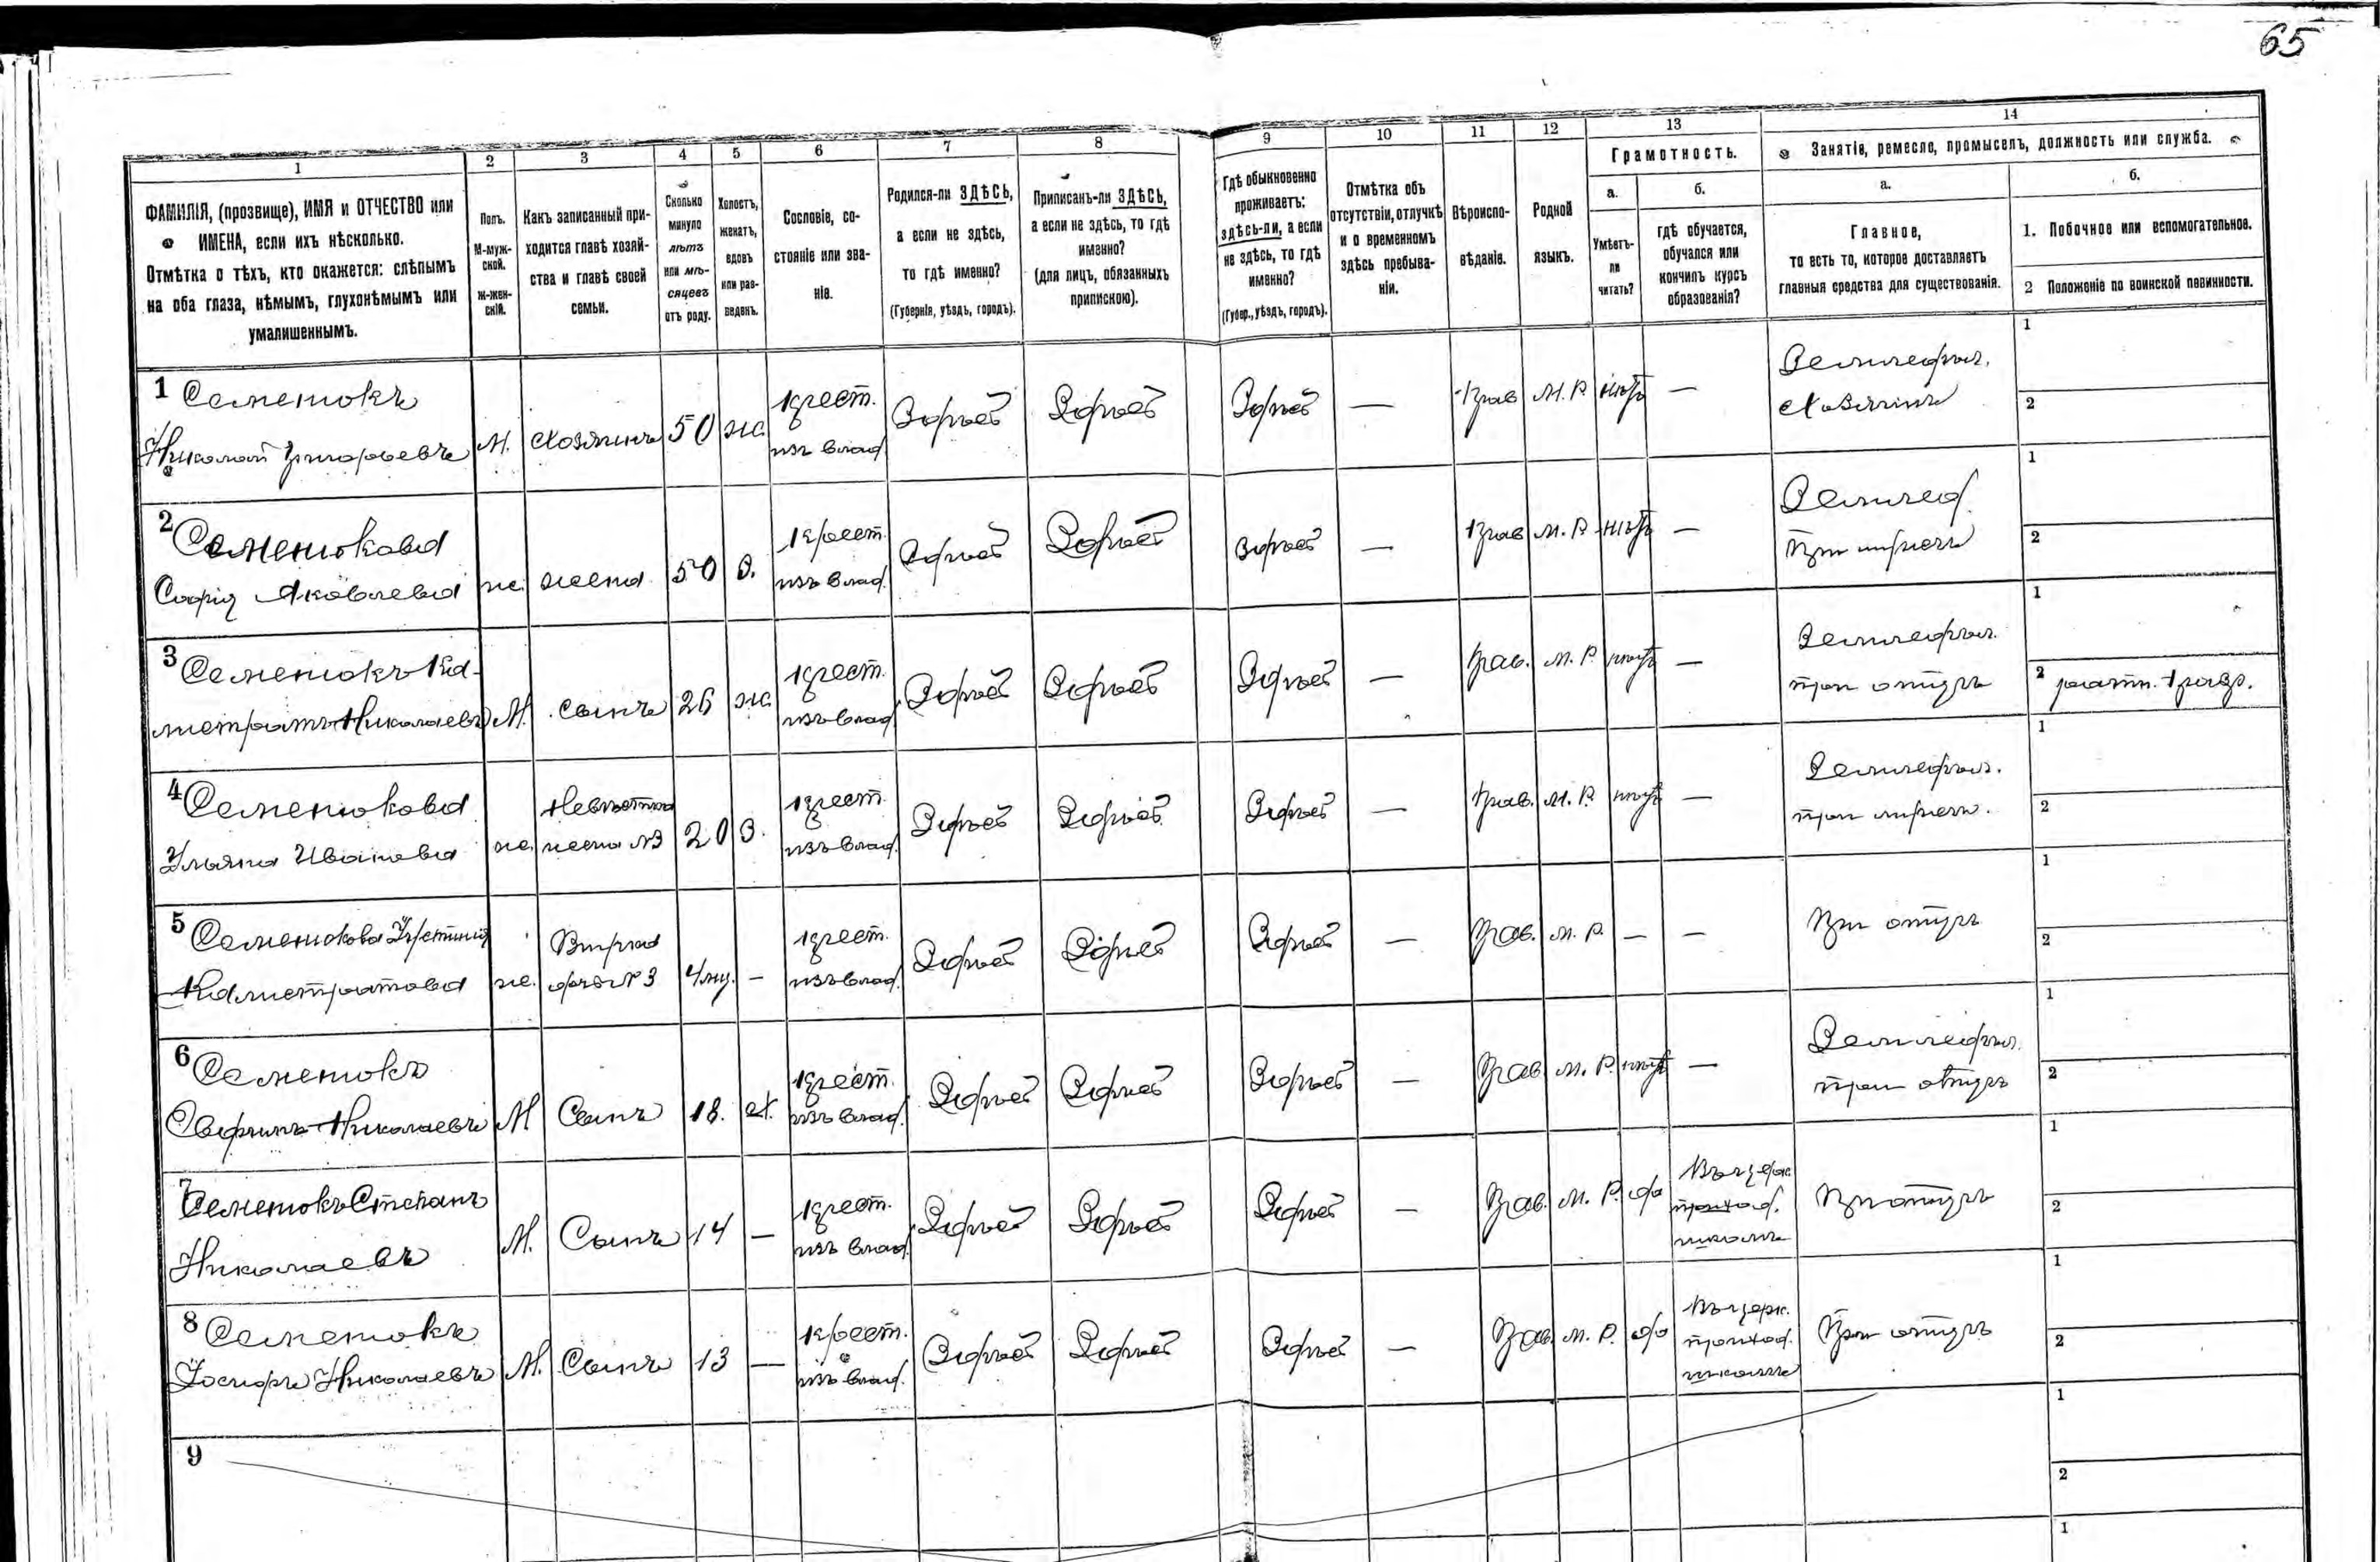 65
1
2
3
4
5
6
7
8
9
10
11
12
13
14
ФАМИЛІЯ, (прозвище), ИМЯ и ОТЧЕСТВО или
ИМЕНА, если ихъ нѣсколько.
Отмѣтка о тѣхъ, кто окажется: слѣпымъ
на оба глаза, нѣмымъ, глухонѣмымъ или
умалишеннымъ.
Полъ.
М-муж-
ской.
Ж-жен-
скій.
Какъ записанный при-
ходится главѣ хозяй-
ства и главѣ своей
семьи.
Сколько
минуло
лѣтъ
или мѣ-
сяцевъ
отъ роду.
Холостъ,
женатъ,
вдовъ
или раз-
веденъ.
Сословіе, со-
стояніе или зва-
ніе.
Родился-ли ЗДѢСЬ,
а если не здѣсь,
то гдѣ именно?
(Губернія, уѣздъ, городъ).
Приписанъ-ли ЗДѢСЬ,
а если не здѣсь, то гдѣ
именно?
(для лицъ, обязанныхъ
припискою).
Гдѣ обыкновенно
проживаетъ:
здѣсь-ли, а если
не здѣсь, то гдѣ
именно?
(Губер., уѣздъ, городъ).
Отмѣтка объ
отсутствіи, отлучкѣ
и о временномъ
здѣсь пребыва-
ніи.
Вѣроиспо-
вѣданіе.
Родной
языкъ.
Грамотность.
а.
б.
Умѣетъ-
ли
читать?
гдѣ обучается,
обучался или
кончилъ курсъ
образованія?
Занятіе, ремесло, промыселъ, должность или служба.
а.
б.
Главное,
то есть то, которое доставляетъ
главныя средства для существованія.
1. Побочное или вспомогательное.
2 Положеніе по воинской повинности.
1 Семенюкъ
Николай Григорьевъ
М.
Хозяинъ
50
ж.
крест.
изъ влад.
Здѣсь
Здѣсь
Здѣсь
—
Прав
М. Р.
нѣтъ
—
Землед.
Хозяинъ
1
2
2 Семенюкова
Софія Яковлева
ж.
жена
50
З.
крест.
изъ влад.
Здѣсь
Здѣсь
Здѣсь
—
Прав
М. Р.
нѣтъ
—
Землед.
При мужѣ
1
2
3 Семенюкъ Ка-
листратъ Николаевъ
М.
сынъ
26
ж.
крест.
изъ влад.
Здѣсь
Здѣсь
Здѣсь
—
Прав.
М. Р.
нѣтъ
—
Землед.
при отцѣ
1
2 ратн. 1 разр.
4 Семенюкова
Ульяна Иванова
ж.
Невѣстка
жена №3
20
З.
крест.
изъ влад.
Здѣсь
Здѣсь
Здѣсь
—
Прав.
М. Р.
нѣтъ
—
Землед.
при мужѣ.
1
2
5 Семенюкова Устинія
Калистратова
ж.
Внучка
дочь №3
4 мц.
—
крест.
изъ влад.
Здѣсь
Здѣсь
Здѣсь
—
Прав.
М. Р.
—
—
При отцѣ
1
2
6 Семенюкъ
Николаевъ
М
Сынъ
18.
Х.
крест.
изъ влад.
Здѣсь
Здѣсь
Здѣсь
—
Прав
М. Р.
нѣтъ
—
Землед.
при отцѣ
1
2
7 Семенюкъ Степанъ
Николаевъ
М.
Сынъ
14
—
крест.
изъ влад.
Здѣсь
Здѣсь
Здѣсь
—
Прав.
М. Р.
да
Въ церк.
приход.
школѣ
При отцѣ
1
2
8 Семенюкъ
Іосифъ Николаевъ
М.
Сынъ
13
—
крест.
изъ влад.
Здѣсь
Здѣсь
Здѣсь
—
Прав.
М. Р.
да
Въ церк.
приход.
школѣ
При отцѣ
1
2
9
1
2
1